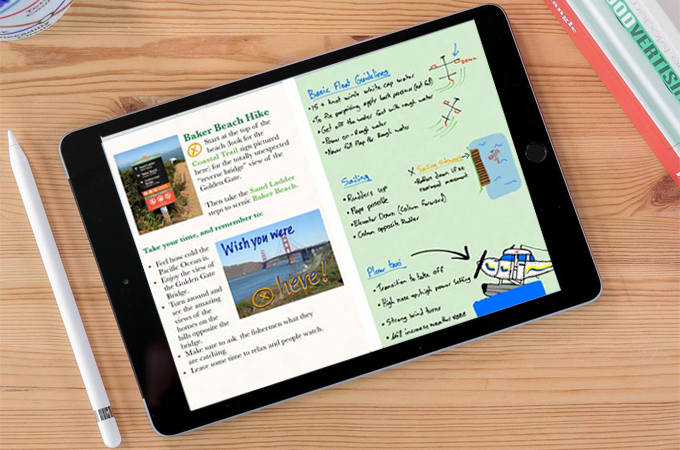 Baker Beach Hike
Start at the top of the
beach (look for the
Coastal Trail sign pictured
here) for the totally unexpected
"reverse bridge" view of the
Golden Gate.
Then take the Sand Ladder
steps to scenic Baker Beach.
Take your time, and remember to:
• Feel how cold the
Pacific Ocean is.
• Enjoy the view of
the Golden Gate
Bridge.
• Turn around and
see the amazing
views of the
homes on the
hills opposite the
bridge.
• Make sure to ask the fishermen what they
are catching.
• Leave some time to relax and people watch.
Wish you were
here!
Basic Float Guidelines
• 15 + knot winds white cap water
• Get off the water fast with rough water
• Power on - Rough water
• Never full flap for Rough water
Down
Sailing
• Rudders up
• Flaps
• Elevator Down (Column forward)
• Column opposite Rudder
Plow taxi
• Transition to take off
• High nose up/high power setting
• Strong wind turns
OODVERTISI
angle